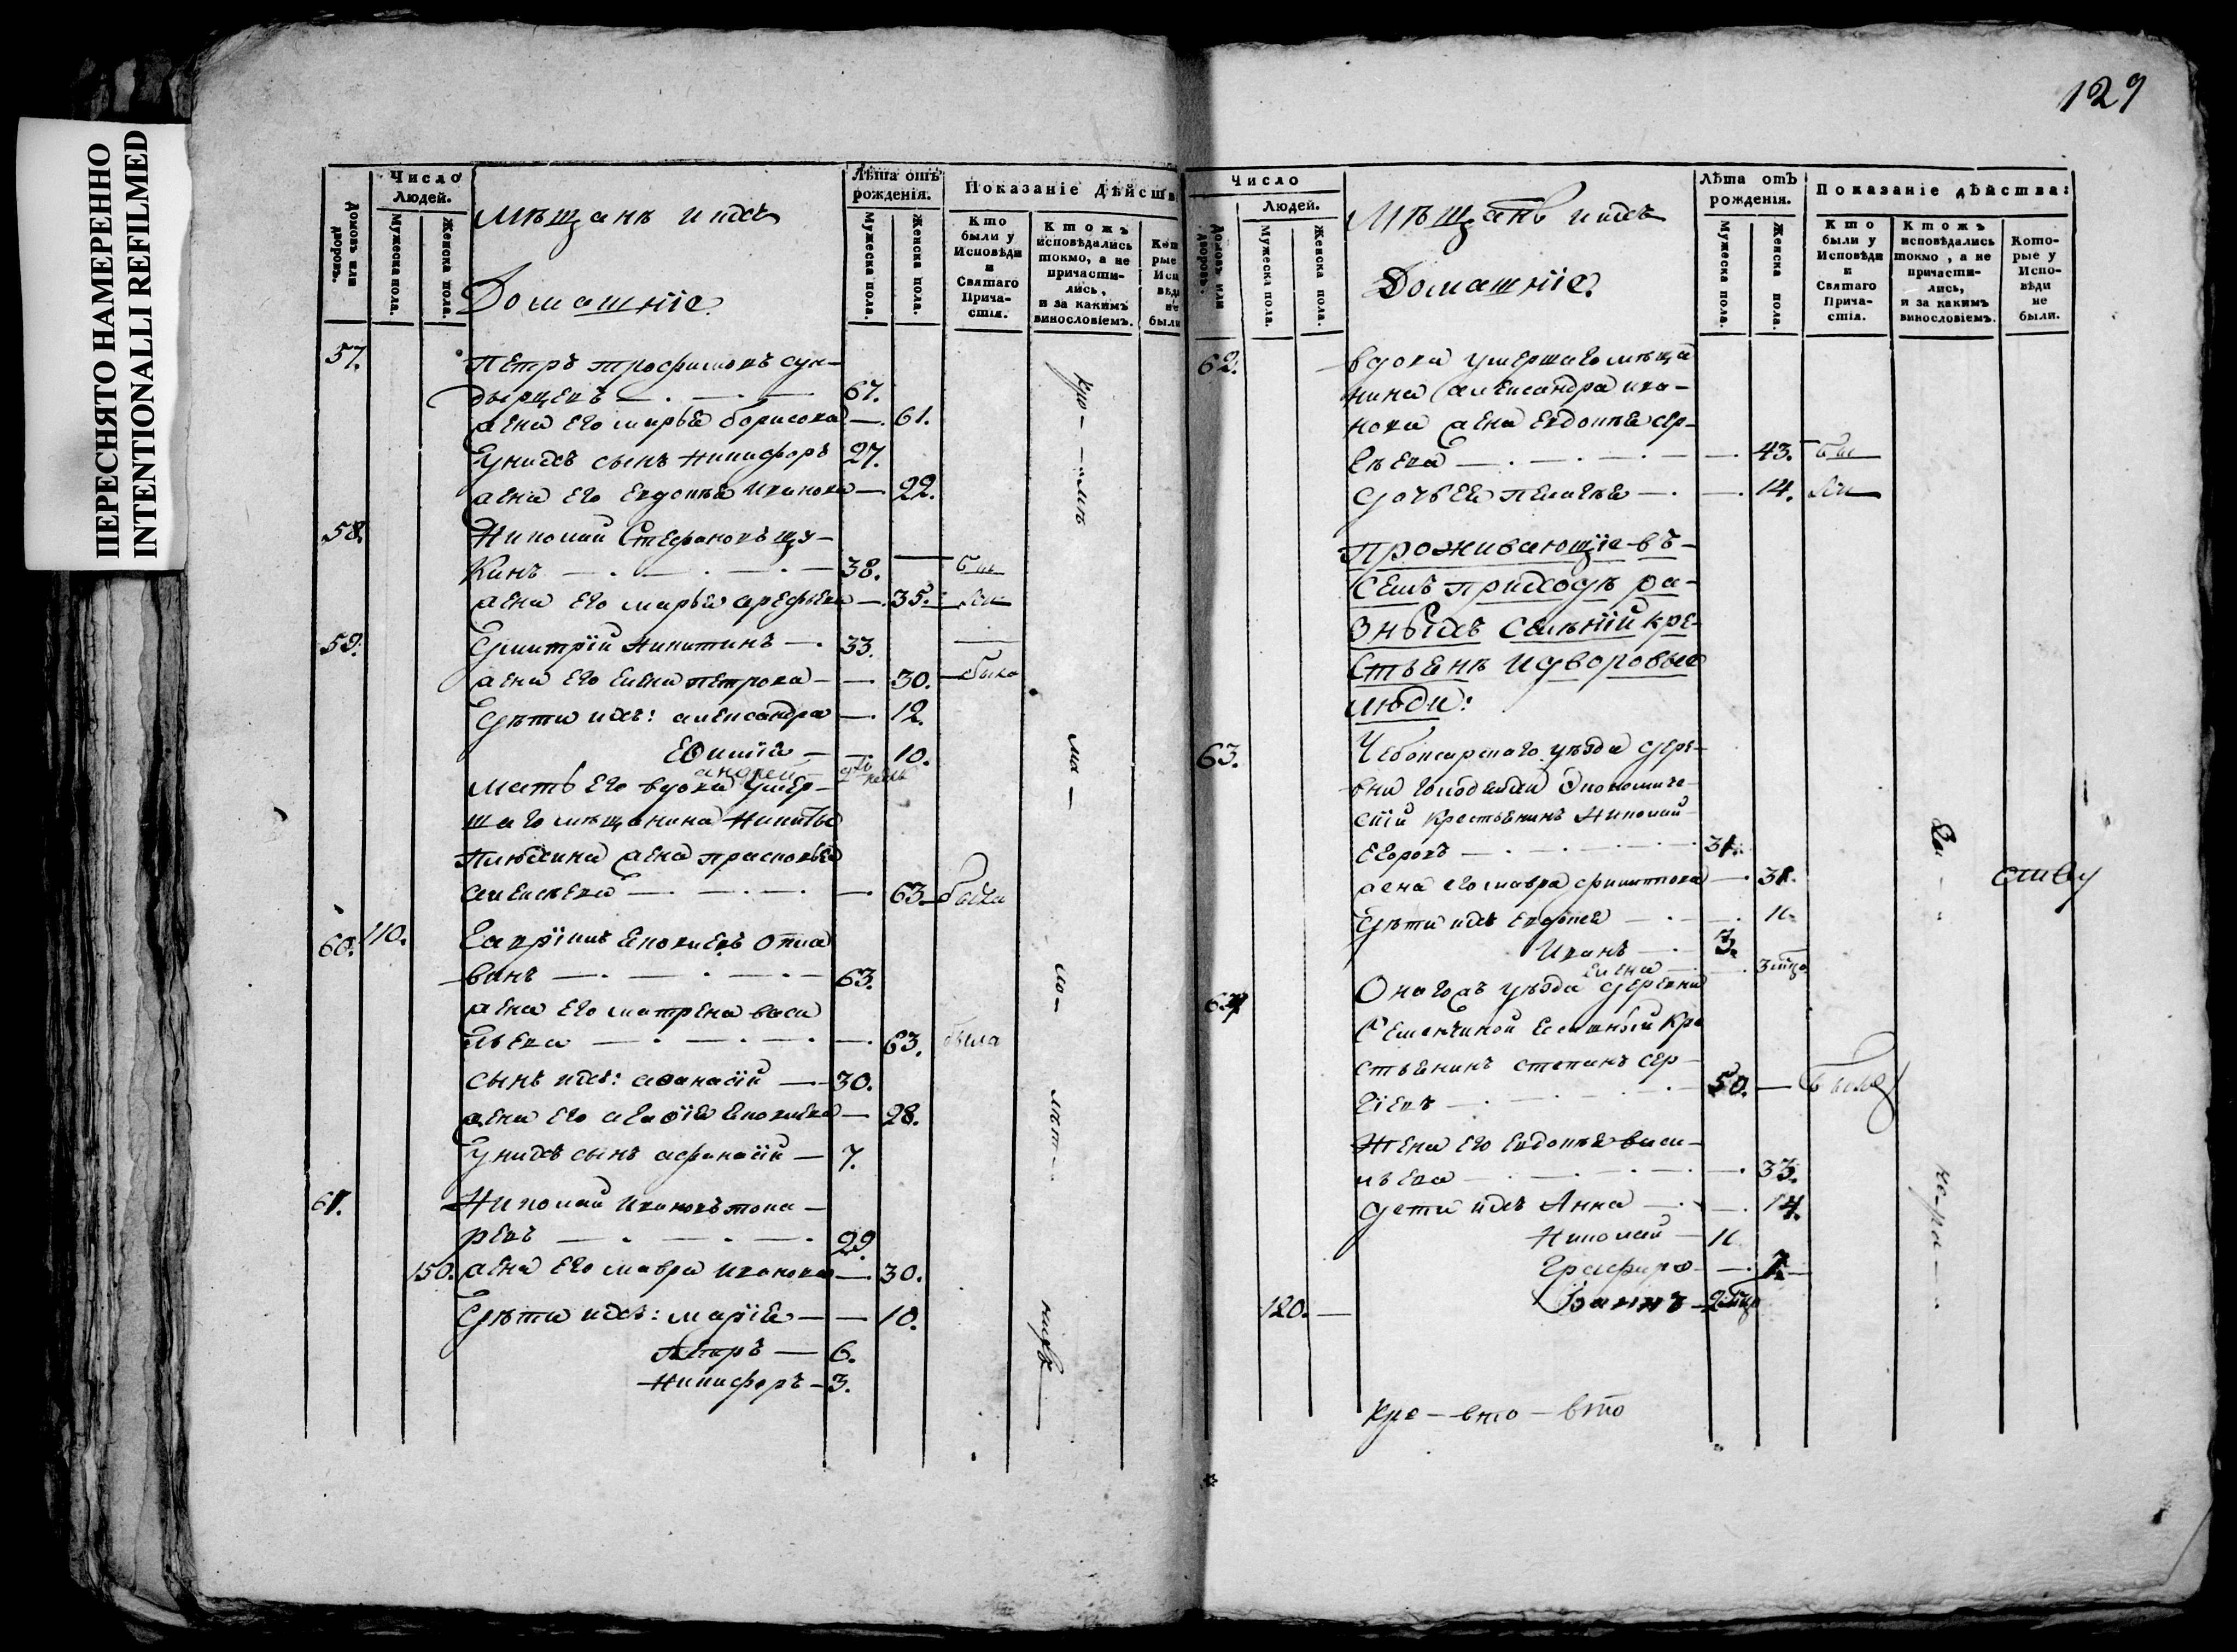 ПЕРЕСНЯТО НАМЕРЕННО
INTENTIONALLI REFILMED
Домовъ или дворовъ.
Число Людей.
Мужеска пола.
Женска пола.
Мѣщанѣ и ихъ
Домашніе.
Лѣта отъ рожденія.
Мужеска пола.
Женска пола.
Показаніе Дѣйств
Кто были у Исповѣди и Святаго Причастія.
Ктожъ исповѣдались токмо, а не причастились, и за какимъ винословіемъ.
57. Петръ трофимовъ сун-
дырцевъ 67.
жена его марья борисова 61.
У нихъ сынъ Никифоръ 27.
жена его евдокѣя Иванова 22.
58. Николай Стефановъ щу-
кинъ 38. бы
жена его марья арефьева 35. ли
59. Димитрій Никитинъ 33.
жена его елена петрова 30. была
Дѣти ихъ: александра 12.
Еѳимія 10.
андрей
мать его вдова умер-
шаго мѣщанина Никиты
Плюхина жена прасковья
алексѣева 63. была
60. 110. Гаврійлъ Яковлевъ
ванъ 63.
жена его матрена васи
льева 63. была
сынъ ихъ: аѳанасій 30.
жена его агаѳія Яковлева 28.
У нихъ сынъ афанасій 7.
61. Николай Ивановъ тока-
ревъ 29.
150. жена его мавра Иванова 30.
Дѣти ихъ: марія 10.
Петръ 6.
Никифоръ 3.
129
Число Людей.
Домовъ или дворовъ.
Мужеска пола.
Женска пола.
Мѣщанѣ и ихъ
Домашніе.
Лѣта отъ рожденія.
Мужеска пола.
Женска пола.
Показаніе дѣйства:
Кто были у Исповѣди и Святаго Причастія.
Ктожъ исповѣдались токмо, а не причастились, и за какимъ винословіемъ.
Которые у Исповѣди не были.
62. вдова умершаго мѣща
нина александра ива-
нова жена евдокѣя сер-
гѣева 43. бы
дочь ея пелагѣя 14. ли
Проживающіе въ
семъ приходѣ ра-
зныхъ селѣній кре-
стьянѣ и дворовые
люди:
63. Чебоксарскаго уѣзда дере-
вни Экономиче-
скій крестьянинъ Николай
егоровъ 31.
жена его мавра филипова 31.
Дѣти ихъ евдокея 11.
Иванъ 3.
елена
64. Онагожъ уѣзда деревни
кре
стьянинъ степанъ сер-
гіевъ 50. былъ
Жена его евдокѣя васи-
льева 33.
дети ихъ Анна 14.
Николай 11
Графира 7.
120. Іоаннъ